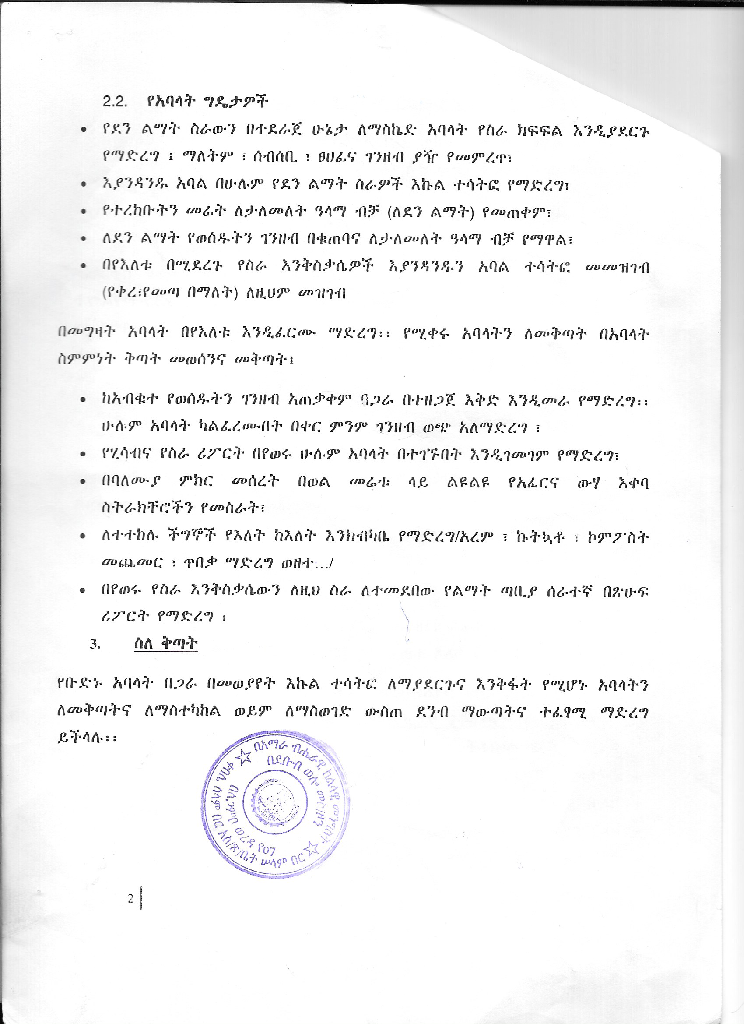 2.2. የአባላት ግዴታዎች
• የደን ልማት ስራውን በተደራጀ ሁኔታ ለማስኬድ አባላት የስራ ክፍፍል እንዲያደርጉ
የማድረግ ፤ ማለትም ፣ ሰብሳቢ ፣ ፀሀፊና ገንዘብ ያዥ የመምረጥ፣
• እያንዳንዱ አባል በሁሉም የደን ልማት ስራዎች እኩል ተሳትፎ የማድረግ፣
• የተረከቡትን መሬት ለታለመለት ዓላማ ብቻ (ለደን ልማት) የመጠቀም፣
• ለደን ልማት የወሰዱትን ገንዘብ በቁጠባና ለታለመለት ዓላማ ብቻ የማዋል፣
• በየእለቱ በሚደረጉ የስራ እንቅስቃሴዎች እያንዳንዱን አባል ተሳትፎ መመዝገብ
(የቀረ፣የመጣ በማለት) ለዚህም መዝገብ
በመግዛት አባላት በየእለቱ እንዲፈርሙ ማድረግ፡፡ የሚቀሩ አባላትን ለመቅጣት በአባላት
ስምምነት ቅጣት መወሰንና መቅጣት፤
• ከአብቁተ የወሰዱትን ገንዘብ አጠቃቀም ባጋራ በተዘጋጀ እቅድ እንዲመራ የማድረግ፡፡
ሁሉም አባላት ካልፈረሙበት በቀር ምንም ገንዘብ ወጭ አለማድረግ ፤
• የሂሳብና የስራ ሪፖርት በየወሩ ሁሉም አባላት በተገኙበት እንዲገመገም የማድረግ፣
• በባለሙያ ምክር መሰረት በወል መሬቱ ላይ ልዩልዩ የአፈርና ውሃ እቀባ
ስትራክቸሮችን የመስራት፣
• ለተተከሉ ችግኞች የእለት ከእለት እንክብካቤ የማድረግ/አረም ፣ ኩትኳቶ ፣ ኮምፖስት
መጨመር ፣ ጥበቃ ማድረግ ወዘተ.../
• በየወሩ የስራ እንቅስቃሴውን ለዚህ ስራ ለተመደበው የልማት ጣቢያ ሰራተኛ በጽሁፍ
ሪፖርት የማድረግ ፤
3. ስለ ቅጣት
የቡድኑ አባላት በጋራ በመወያየት እኩል ተሳትፎ ለማያደርጉና እንቅፋት የሚሆኑ አባላትን
ለመቅጣትና ለማስተካከል ወይም ለማስወገድ ውስጠ ደንብ ማውጣትና ተፈፃሚ ማድረግ
ይችላሉ፡፡
በአማራ ብሔራዊ ክልላዊ መንግስት
በደቡብ ወሎ
2